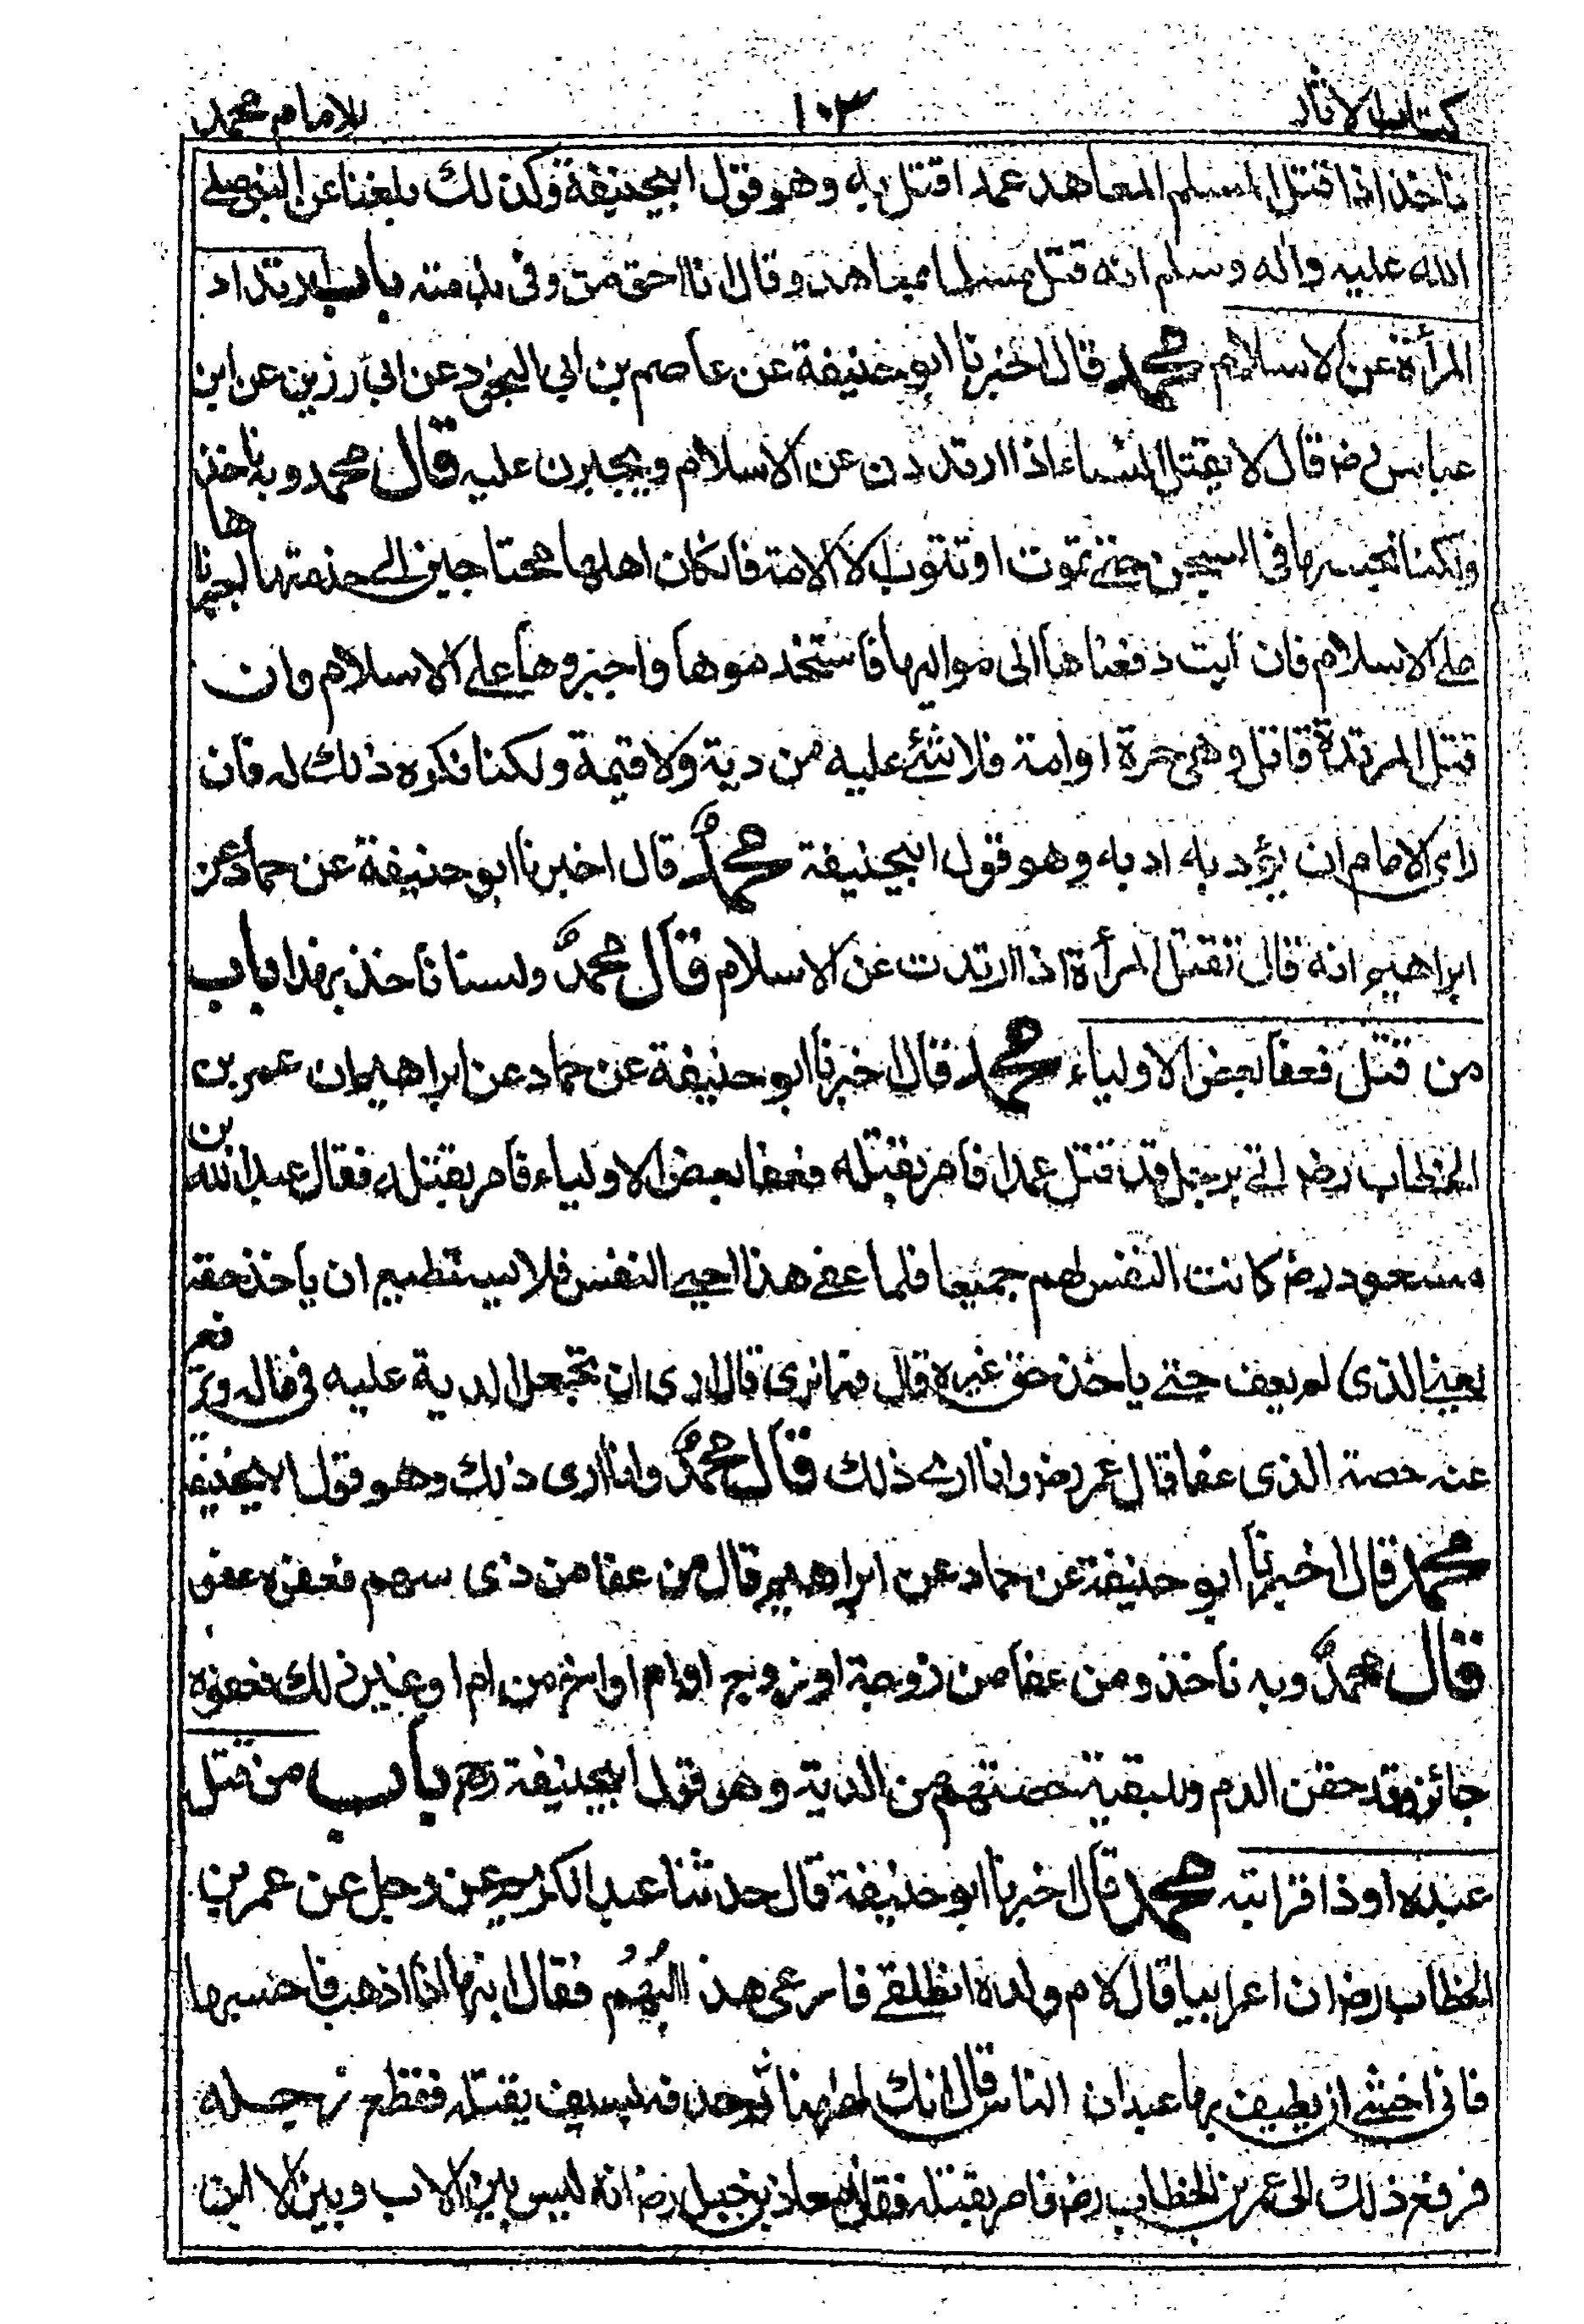 كتاب الاثار ١٠٣ للامام محمد
ناخذ اذا قتل المسلم المعاهد عمدا قتل به وهو قول ابيحنيفة وكذلك بلغنا عن النبي صلى
الله عليه واله وسلم انه قتل مسلما بمعاهد وقال انا احق من وفى بذمته باب ارتداد
المرأة عن الاسلام محمد قال اخبرنا ابو حنيفة عن عاصم بن ابي النجود عن ابي رزين عن ابن
عباس رض قال لا يقتل النساء اذا ارتددن عن الاسلام ويجبرن عليه قال محمد وبه ناخذ
ولكنا نحبسها في السجن حتى تموت او تتوب الا الامة فان كان اهلها محتاجين الى خدمتها اجبرناها
على الاسلام فان ابت دفعناها الى مواليها فاستخدموها واجبروها على الاسلام وان
قتل المرتدة قاتل وهي حرة او امة فلا شئ عليه من دية ولا قيمة ولكنا نكره ذلك له فان
راى الامام ان يؤدبه ادبه وهو قول ابيحنيفة محمد قال اخبرنا ابو حنيفة عن حماد عن
ابراهيم انه قال تقتل المرأة اذا ارتدت عن الاسلام قال محمد ولسنا ناخذ بهذا باب
من قتل فعفا بعض الاولياء محمد قال اخبرنا ابو حنيفة عن حماد عن ابراهيم ان عمر بن
الخطاب رض اتي برجل قد قتل عمدا فامر بقتله فعفا بعض الاولياء فامر بقتله فقال عبد الله بن
مسعود رض كانت النفس لهم جميعا فلما عفى هذا احيى النفس فلا يستطيع ان ياخذ حقه
يعني الذي لم يعف حتى ياخذ حق غيره قال فما ترى قال ارى ان تجعل الدية عليه في ماله وترفع
عنه حصة الذي عفا قال عمر رض وانا ارى ذلك قال محمد وانا ارى ذلك وهو قول ابيحنيفة
محمد قال اخبرنا ابو حنيفة عن حماد عن ابراهيم قال من عفا من ذي سهم فعفوه عفو
قال محمد وبه ناخذ ومن عفا من زوجة او زوج او ام او اخ من ام او غير ذلك فعفوه
جائز وقد حقن الدم وللبقية حصتهم من الدية وهو قول ابيحنيفة رح باب من قتل
عبده او ذا قرابته محمد قال اخبرنا ابو حنيفة قال حدثنا عبد الكريم عن رجل عن عمر بن
الخطاب رض ان اعرابيا قال لام ولده انطلقي فارعى هذا البُهُم فقال ابنها اذا اذهب فاحبسها
فاني اخشى ان يطيف بها عبدان الناس قال انك لههنا ثم حذفه بسيف يقتله فقطع رجله
فرفع ذلك الى عمر بن الخطاب رض فامر بقتله فقال معاذ بن جبل رض انه ليس بين الاب وبين الابن